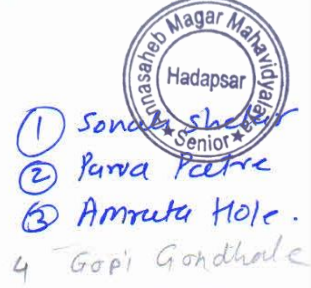 Annasaheb Magar Mahavidyalaya
Hadapsar
★ Senior ★
① Sonali Shelar
② Purva Patre
③ Amruta Hole.
4 Gopi Gondhale